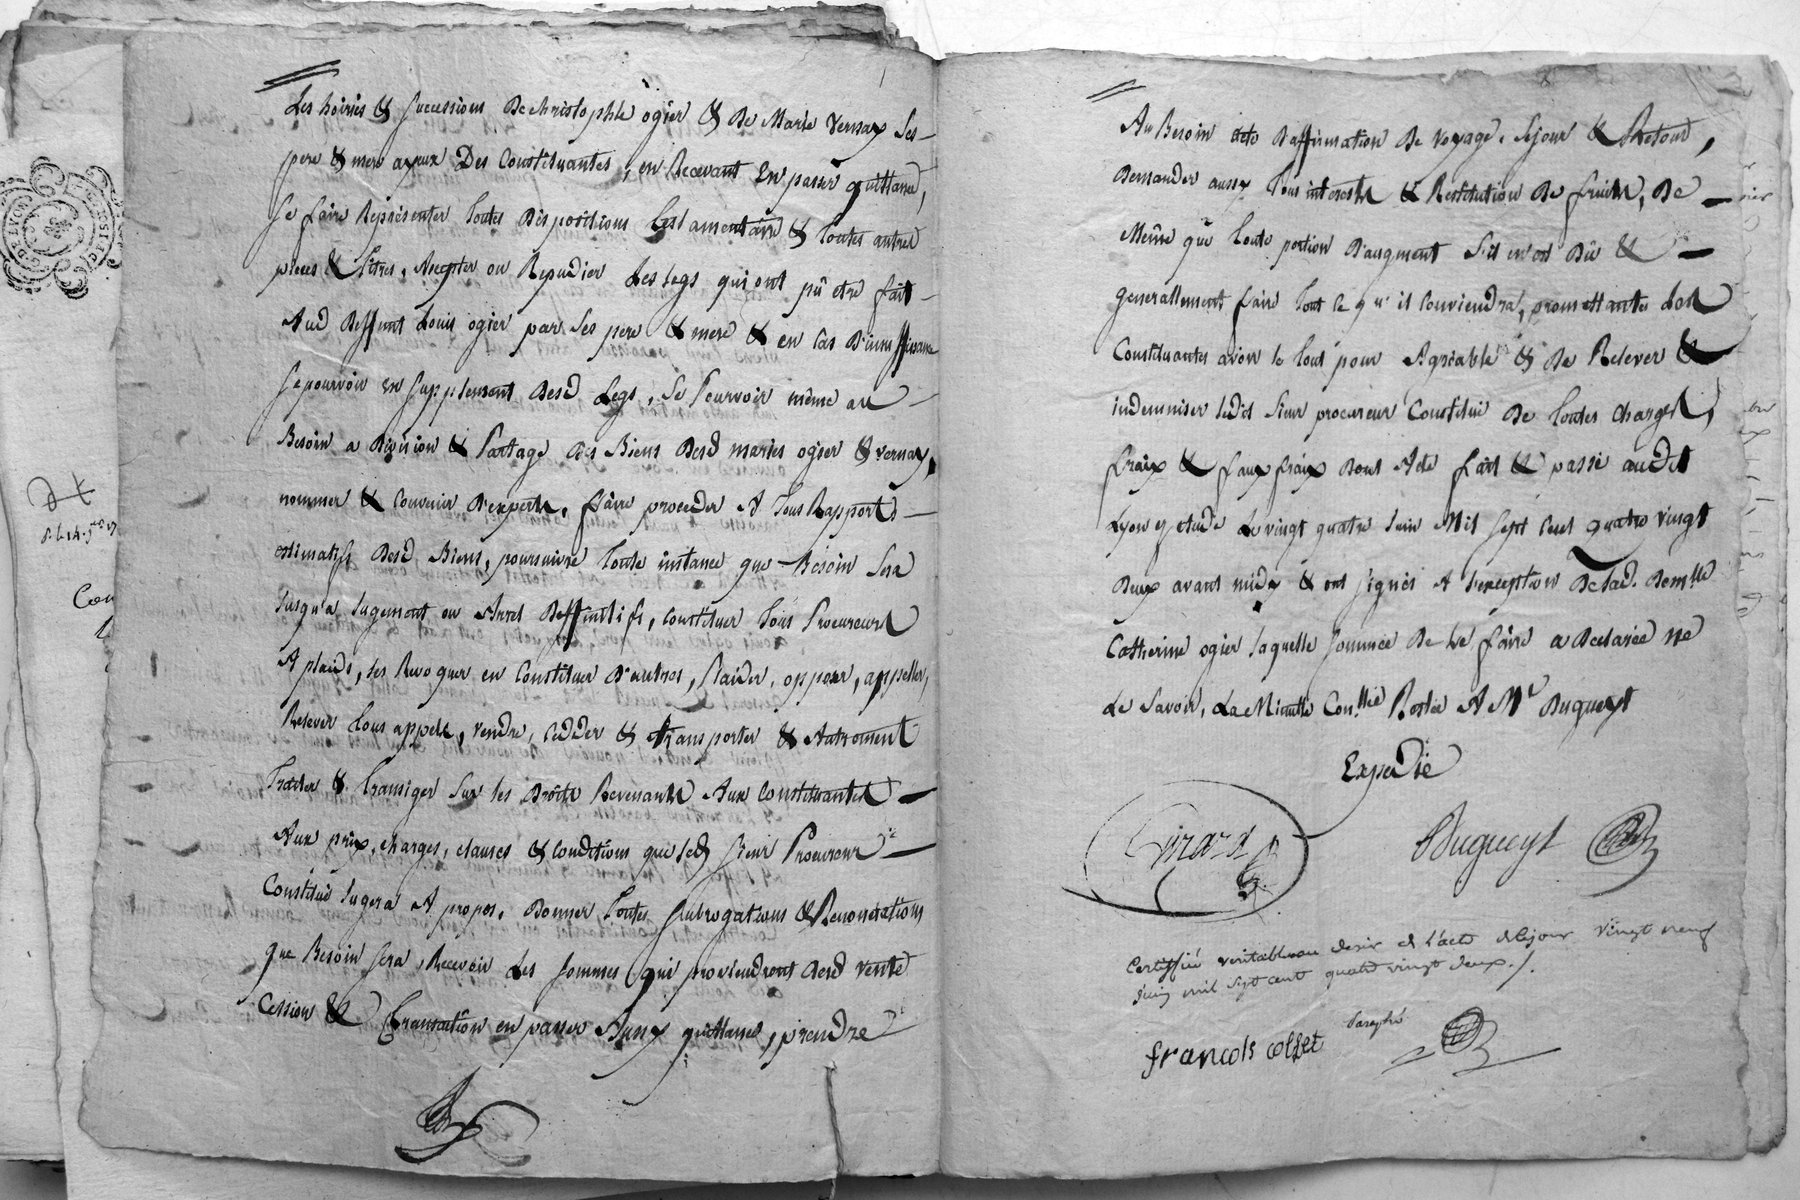 Les hoiries & successions De Christophle ogier & De Marie Vernay ses
pere & mere ayeux Des Constituantes, en Recevant En passer quittance,
se faire Representer toutes Dispositions testamentaire & toutes autres
pieces & titres, Accepter ou Repudier Les Legs qui ont pû etre fait
Aud Deffunt Louis ogier par ses pere & mere & en cas D'insuffisance
se pourvoir en supplement Desd Legs, se Pourvoir même au
Besoin a Division & Partage Des Biens Desd mariés ogier & vernay,
nommer & Convenir D'experts, faire proceder A tous Rapports
estimatifs Desd Biens, poursuivre toute instance que Besoin sera
jusqu'a jugement ou Arret Deffinitifs, constituer tous Procureurs
A plaids, les Revoquer en Constituer D'autres, Plaider, opposer, appeller,
Relever tous appels, vendre, cedder & transporter & Autrement
Traiter & Transiger sur les Droits Revenants Aux Constituantes
Aux prix, charges, clauses & conditions que led Sieur Procureur
Constitué jugera A propos, Donner toutes subrogations & Renonciations
que Besoin sera, Recevoir Les sommes qui proviendront Desd vente
Cession & Transaction en passer Aussy quittances, prendre
Au Besoin acte D'affirmation De voyage, sejour & Retour,
Demander aussy tous interests & Restitution De fruits, De
Même que toute portion D'augment s'il en est Dû &
generallement faire tout ce qu'il conviendra, promettantes lesd
Constituantes avoir le tout pour Agreable & De Relever &
indemniser ledit sieur procureur Constitué De toutes charges,
fraix & faux fraix Dont Acte fait & passé audit
Lyon y etude Le vingt quatre juin Mil sept cent quatre vingt
Deux avant midy & ont signés A l'exception De lad. Demlle
Catherine ogier laquelle sommée De ce faire a Declarée ne
Le savoir, La Minutte Con.llée Restée A Me Dugueyt
Expedié
Girard
Dugueyt
Certiffié veritable au desir de l'acte de ce jour vingt neuf
juin mil sept cent quatre vingt deux ./.
francois collet
Paraphé